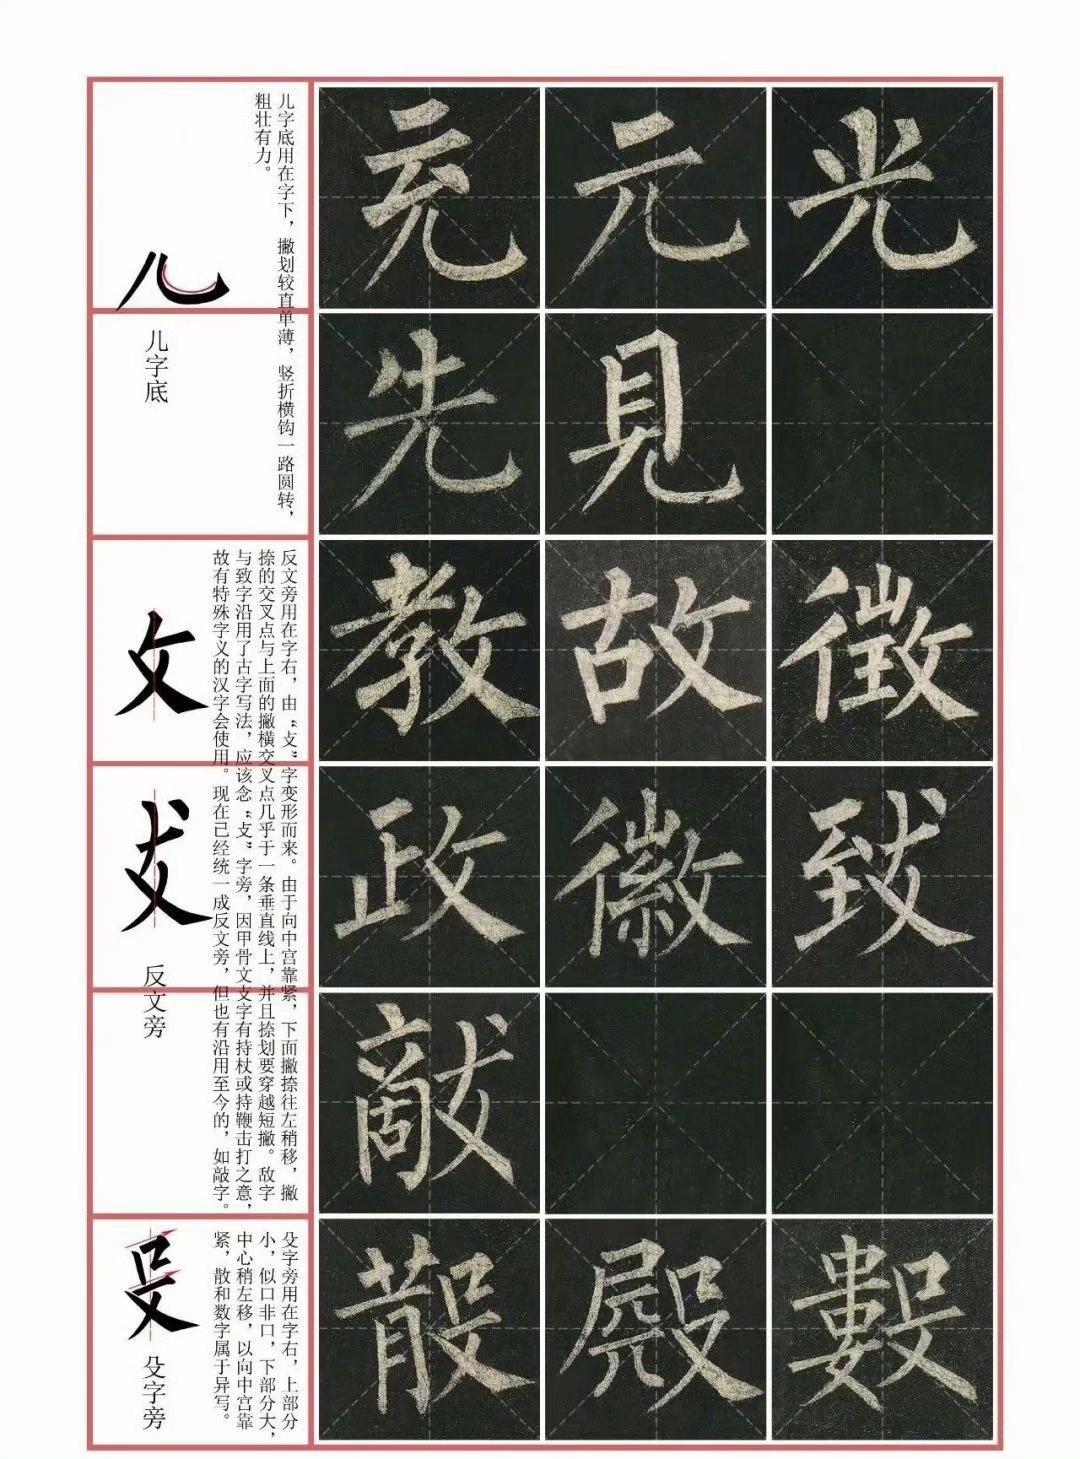 儿
儿字底
儿字底用在字下，撇划较直单薄，竖折横钩一路圆转，
粗壮有力。
充 元 光
先 見
攵
攴
反文旁
反文旁用在字右，由“攴”字变形而来。由于向中宫靠紧，下面撇捺往左稍移，撇
捺的交叉点与上面的撇横交叉点几乎于一条垂直线上，并且捺划要穿越短撇。敌字
与致字沿用了古字写法，应该念“攴”字旁，因甲骨文攴字有持杖或持鞭击打之意，
故有特殊字义的汉字会使用。现在已经统一成反文旁，但也有沿用至今的，如敲字。
教 故 徵
政 徽 致
敵
殳
殳字旁
殳字旁用在字右，上部分
小，似口非口，下部分大，
中心稍左移，以向中宫靠
紧，散和数字属于异写。
散 殿 數